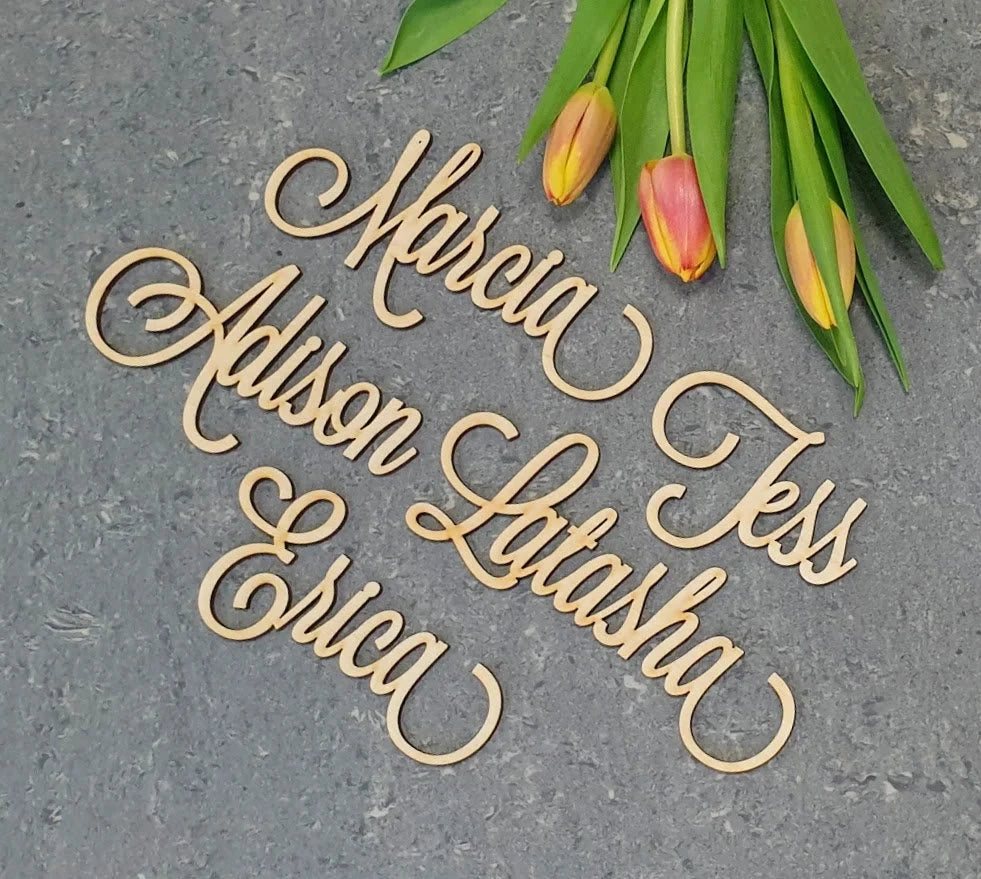 Marcia
Adison
Tess
Latasha
Erica